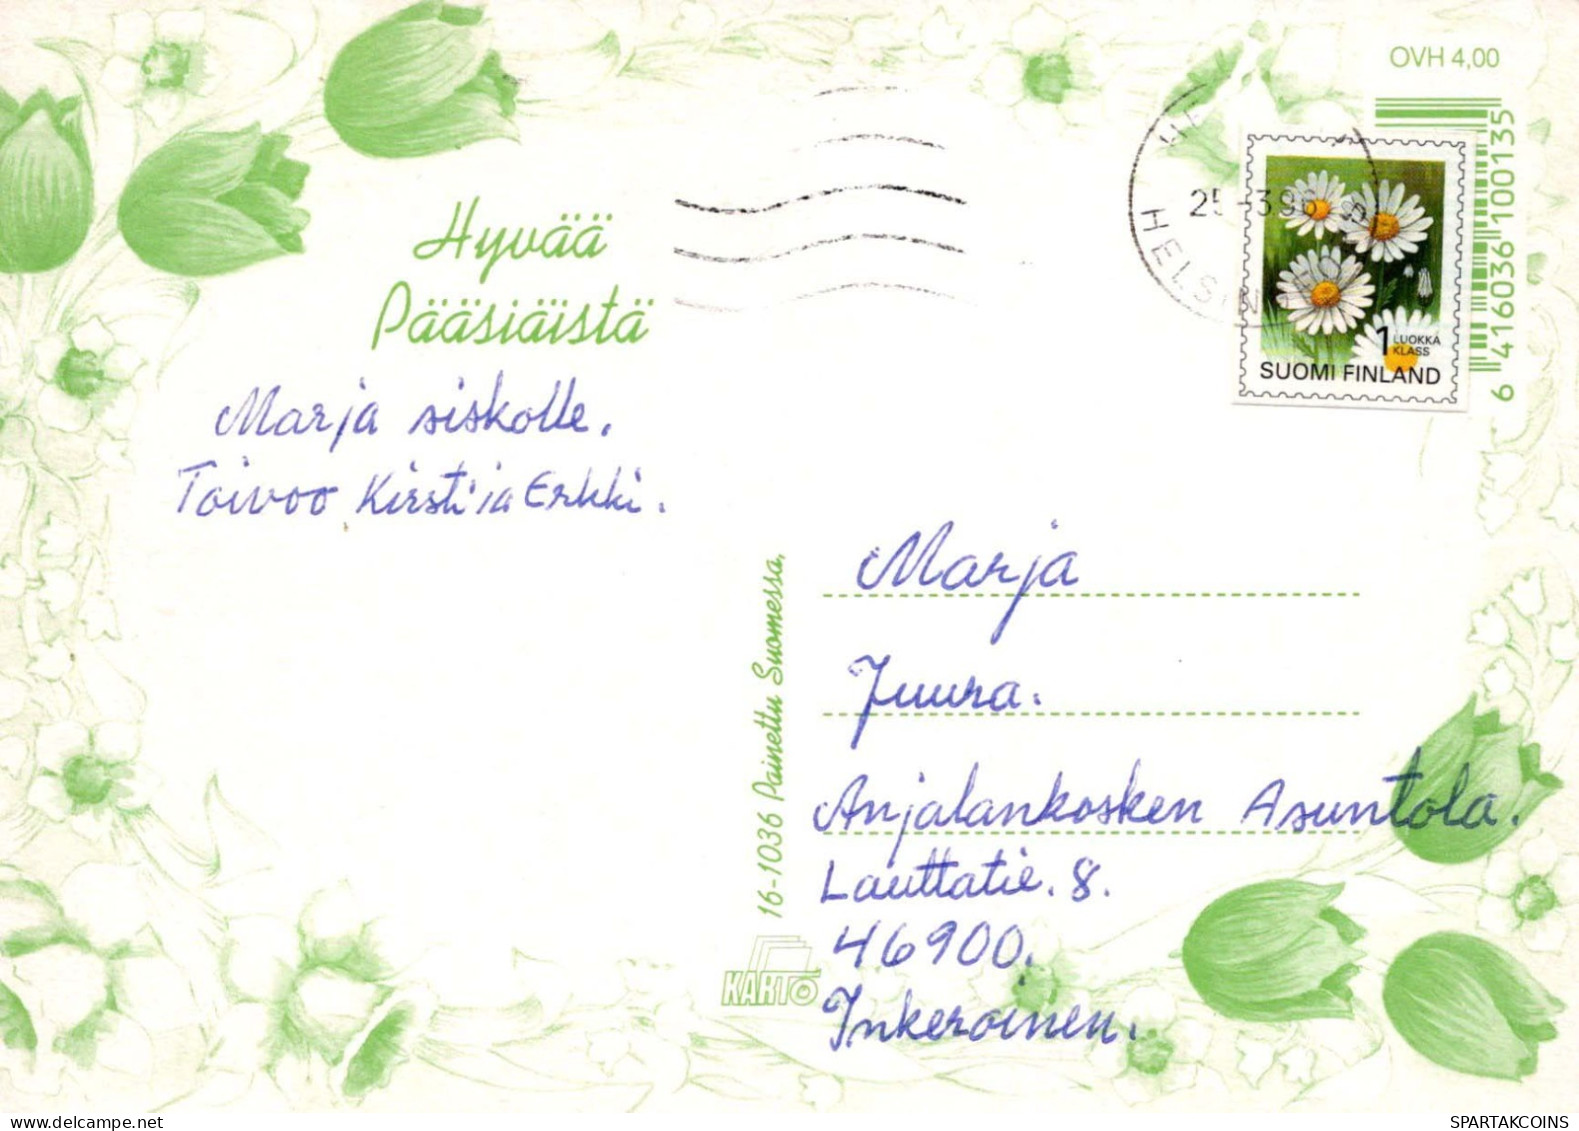 OVH 4,00
6 416036 100135
25-3.96
HELSIN
1 LUOKKA
KLASS
SUOMI FINLAND
Hyvää
Pääsiäistä
Marja siskolle.
Toivoo Kirsti ja Erkki.
16-1036 Painettu Suomessa.
KARTO
Marja
Juura.
Anjalankosken Asuntola.
Lauttatie. 8.
46900.
Inkeroinen.
SPARTAKCOINS
delcampe.net